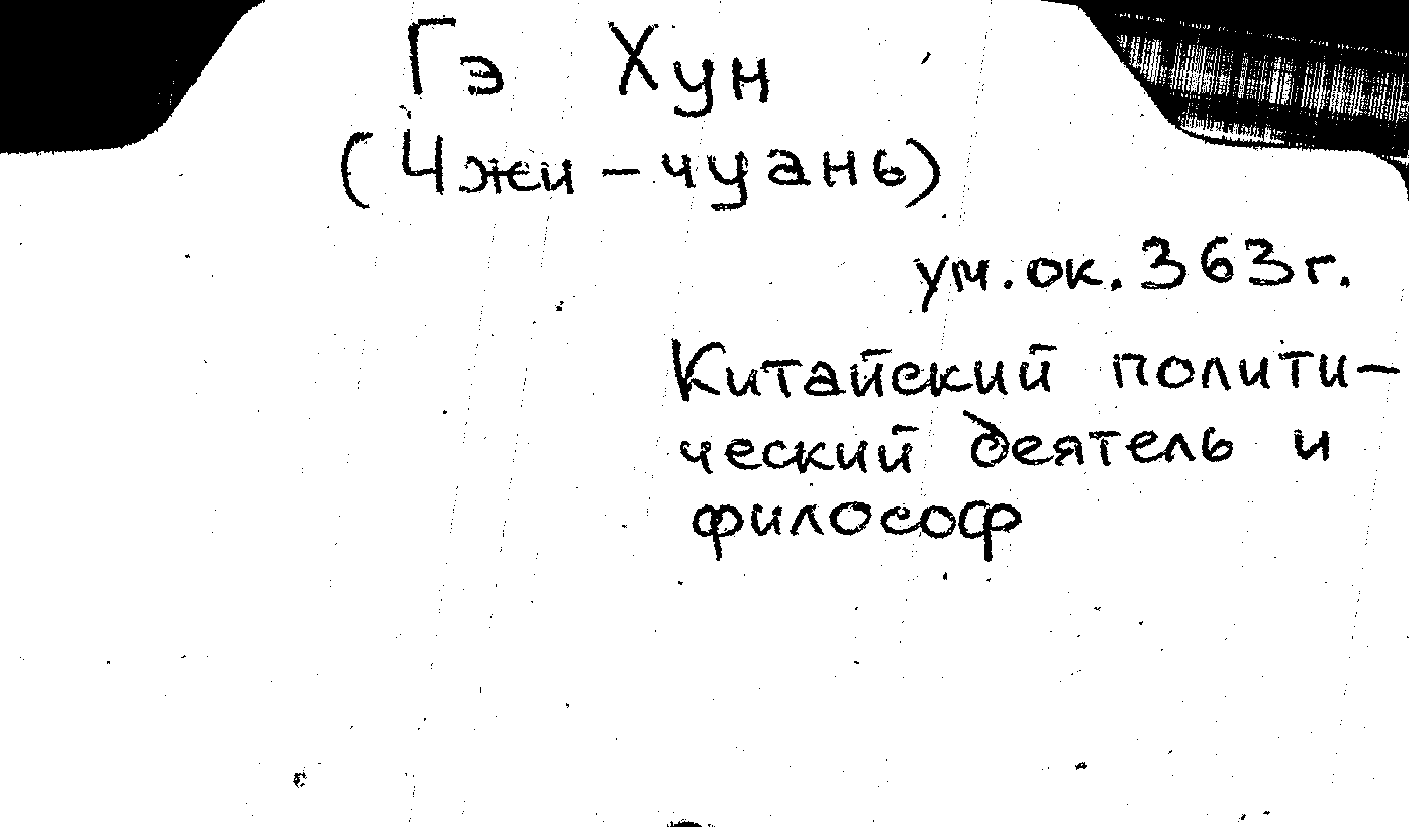 Гэ Хун
(Чжи-чуань)
ум.ок.363г.
Китайский полити-
ческий деятель и
философ